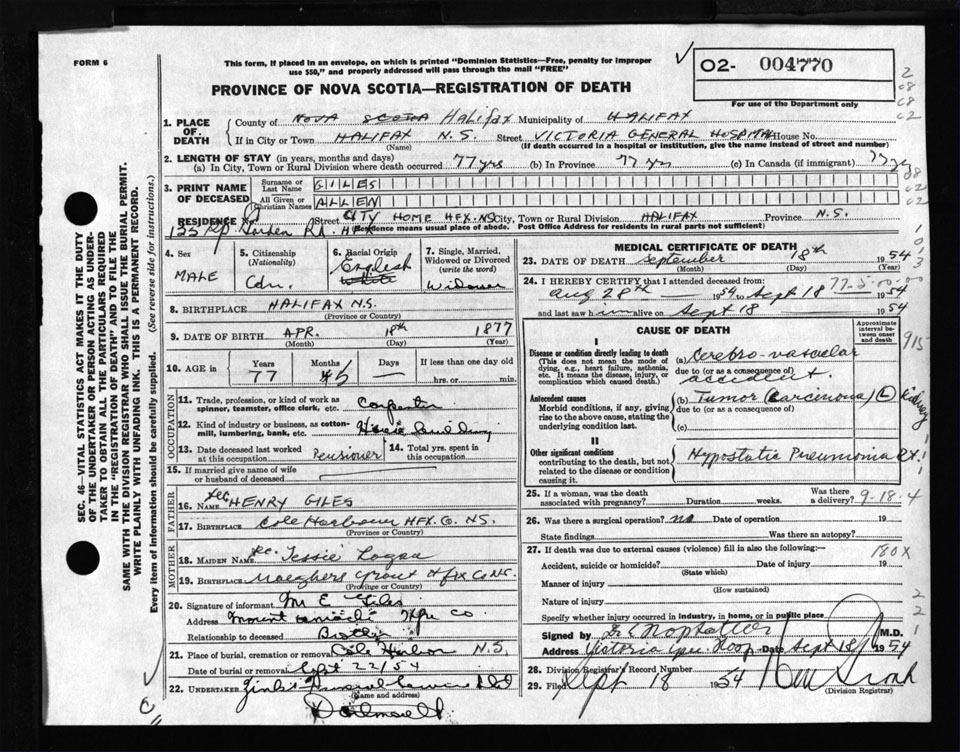 FORM 6
This form, if placed in an envelope, on which is printed "Dominion Statistics—Free, penalty for improper
use $50," and properly addressed will pass through the mail "FREE"
02- 004770
PROVINCE OF NOVA SCOTIA—REGISTRATION OF DEATH
For use of the Department only
1. PLACE OF DEATH County of NOVA SCOTIA Halifax Municipality of HALIFAX
If in City or Town HALIFAX N.S. Street VICTORIA GENERAL HOSPITAL House No.
(Name) (If death occurred in a hospital or institution, give the name instead of street and number)
2. LENGTH OF STAY (in years, months and days)
(a) In City, Town or Rural Division where death occurred 77 yrs (b) In Province 77 yrs (c) In Canada (if immigrant) 77 yrs
3. PRINT NAME OF DECEASED Surname or Last Name GILES
All Given or Christian Names ALLEN
RESIDENCE Street CITY HOME HFX. N.S. City, Town or Rural Division HALIFAX Province N.S.
Residence means usual place of abode. Post Office Address for residents in rural parts not sufficient)
4. Sex
MALE
5. Citizenship
(Nationality)
Cdn.
6. Racial Origin
English
White
7. Single, Married,
Widowed or Divorced
(write the word)
Widower
8. BIRTHPLACE HALIFAX N.S.
(Province or Country)
9. DATE OF BIRTH APR. 18th 1877
(Month) (Day) (Year)
10. AGE in Years Months Days If less than one day old
77 5 — hrs. or min.
OCCUPATION
11. Trade, profession, or kind of work as
spinner, teamster, office clerk, etc. Carpenter
12. Kind of industry or business, as cotton-
mill, lumbering, bank, etc. House building
13. Date deceased last worked
at this occupation Pensioner
14. Total yrs. spent in
this occupation
15. If married give name of wife
or husband of deceased
FATHER
16. NAME HENRY GILES
17. BIRTHPLACE Cole Harbour HFX. Co. NS.
(Province or Country)
MOTHER
18. MAIDEN NAME Jessie Logan
19. BIRTHPLACE Hfx Co NS.
(Province or Country)
20. Signature of informant M E Giles
Address Mount Hfx Co
Relationship to deceased
21. Place of burial, cremation or removal Cole Harbour N.S.
Date of burial or removal Sept 22/54
22. UNDERTAKER Funeral Service Ltd
(Name and address)
Dartmouth
MEDICAL CERTIFICATE OF DEATH
23. DATE OF DEATH September 18th 1954
(Month) (Day) (Year)
24. I HEREBY CERTIFY that I attended deceased from:
Aug 28th 1954 to Sept 18 1954
and last saw him alive on Sept 18 1954
CAUSE OF DEATH
Approximate
interval between
onset and
death
I
Disease or condition directly leading to death
(This does not mean the mode of
dying, e.g., heart failure, asthenia,
etc. It means the disease, injury, or
complication which caused death.
(a) Cerebro-vascular
due to (or as a consequence of)
accident.
Antecedent causes
Morbid conditions, if any, giving
rise to the above cause, stating the
underlying condition last.
(b) Tumor (carcinoma) L Kidney
due to (or as a consequence of)
(c)
II
Other significant conditions
contributing to the death, but not
related to the disease or condition
causing it.
Hypostatic Pneumonia
25. If a woman, was the death
associated with pregnancy? Duration weeks. Was there
a delivery? 9-18-4
26. Was there a surgical operation? no Date of operation 19
State findings Was there an autopsy?
27. If death was due to external causes (violence) fill in also the following:—
180X
Accident, suicide or homicide? Date of injury 19
(State which)
Manner of injury
(How sustained)
Nature of injury
Specify whether injury occurred in industry, in home, or in public place
Signed by M.D.
Address Victoria Gen. Hosp Date Sept 18 1954
28. Division Registrar's Record Number
29. Filed Sept 18 1954
(Division Registrar)
SEC. 46—VITAL STATISTICS ACT MAKES IT THE DUTY
OF THE UNDERTAKER OR PERSON ACTING AS UNDER-
TAKER TO OBTAIN ALL THE PARTICULARS REQUIRED
IN THE "REGISTRATION OF DEATH" AND TO FILE THE
SAME WITH THE DIVISION REGISTRAR WHO SHALL ISSUE THE BURIAL PERMIT.
WRITE PLAINLY WITH UNFADING INK. THIS IS A PERMANENT RECORD.
Every item of information should be carefully supplied. (See reverse side for instructions.)